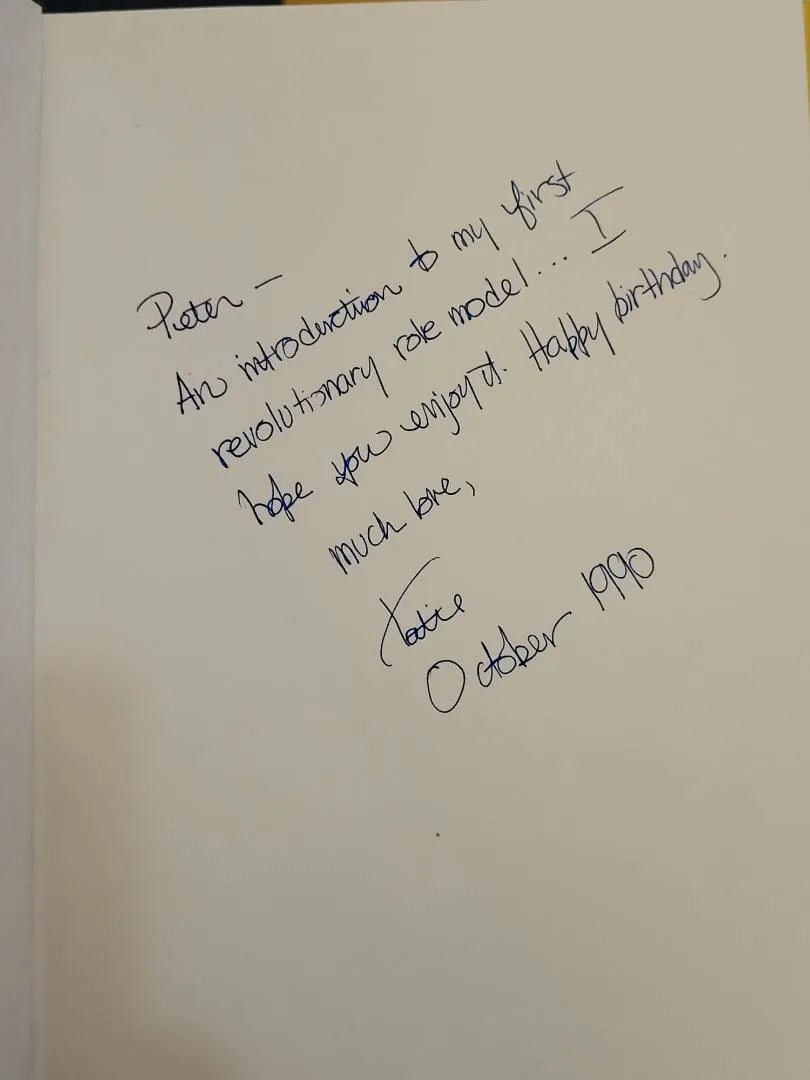 Pieter —
An introduction to my first
revolutionary role model... I
hope you enjoy it. Happy birthday.
much love,
Katie
October 1990